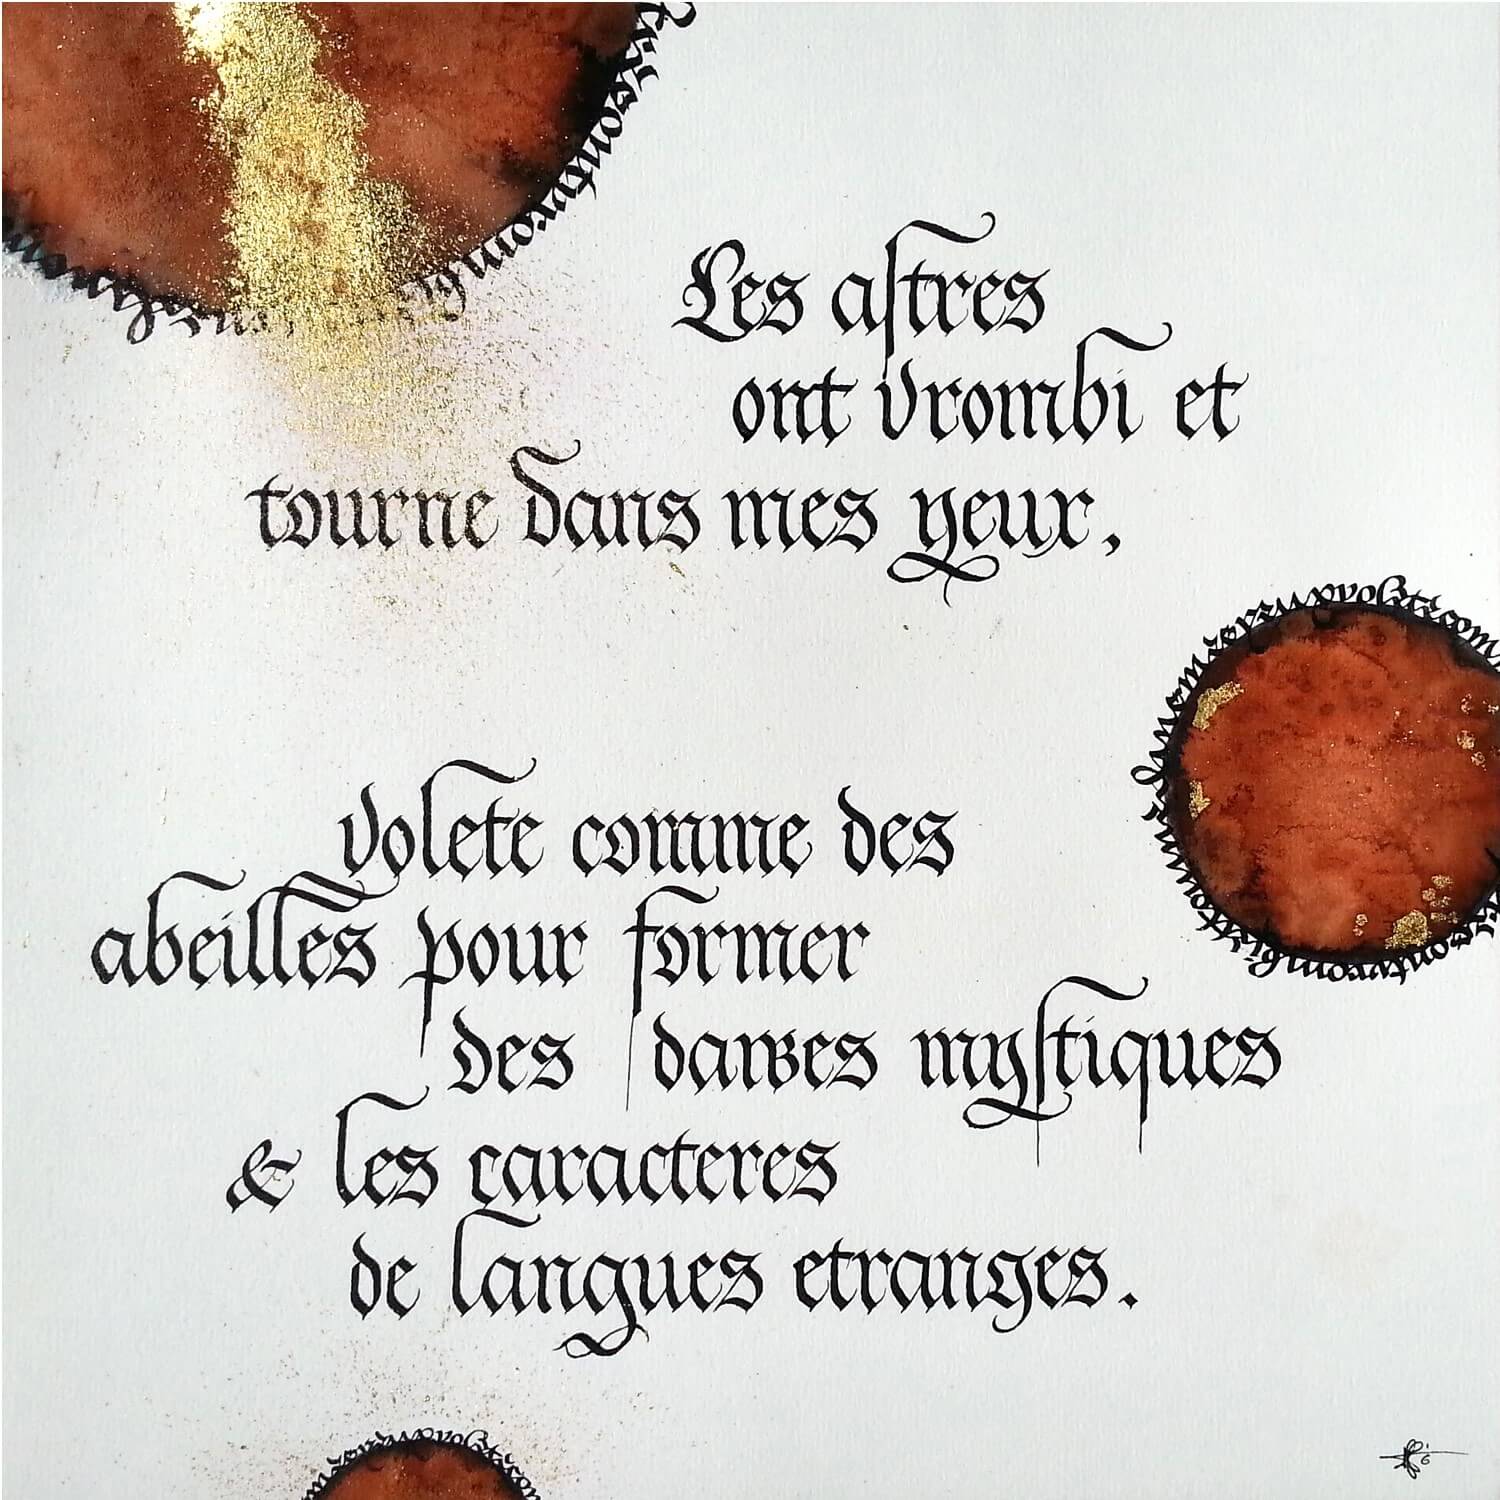 Les aſtres
ont vrombi et
tourne dans mes yeux,
volete comme des
abeilles pour former
des danses myſtiques
& les caracteres
de langues etranges.